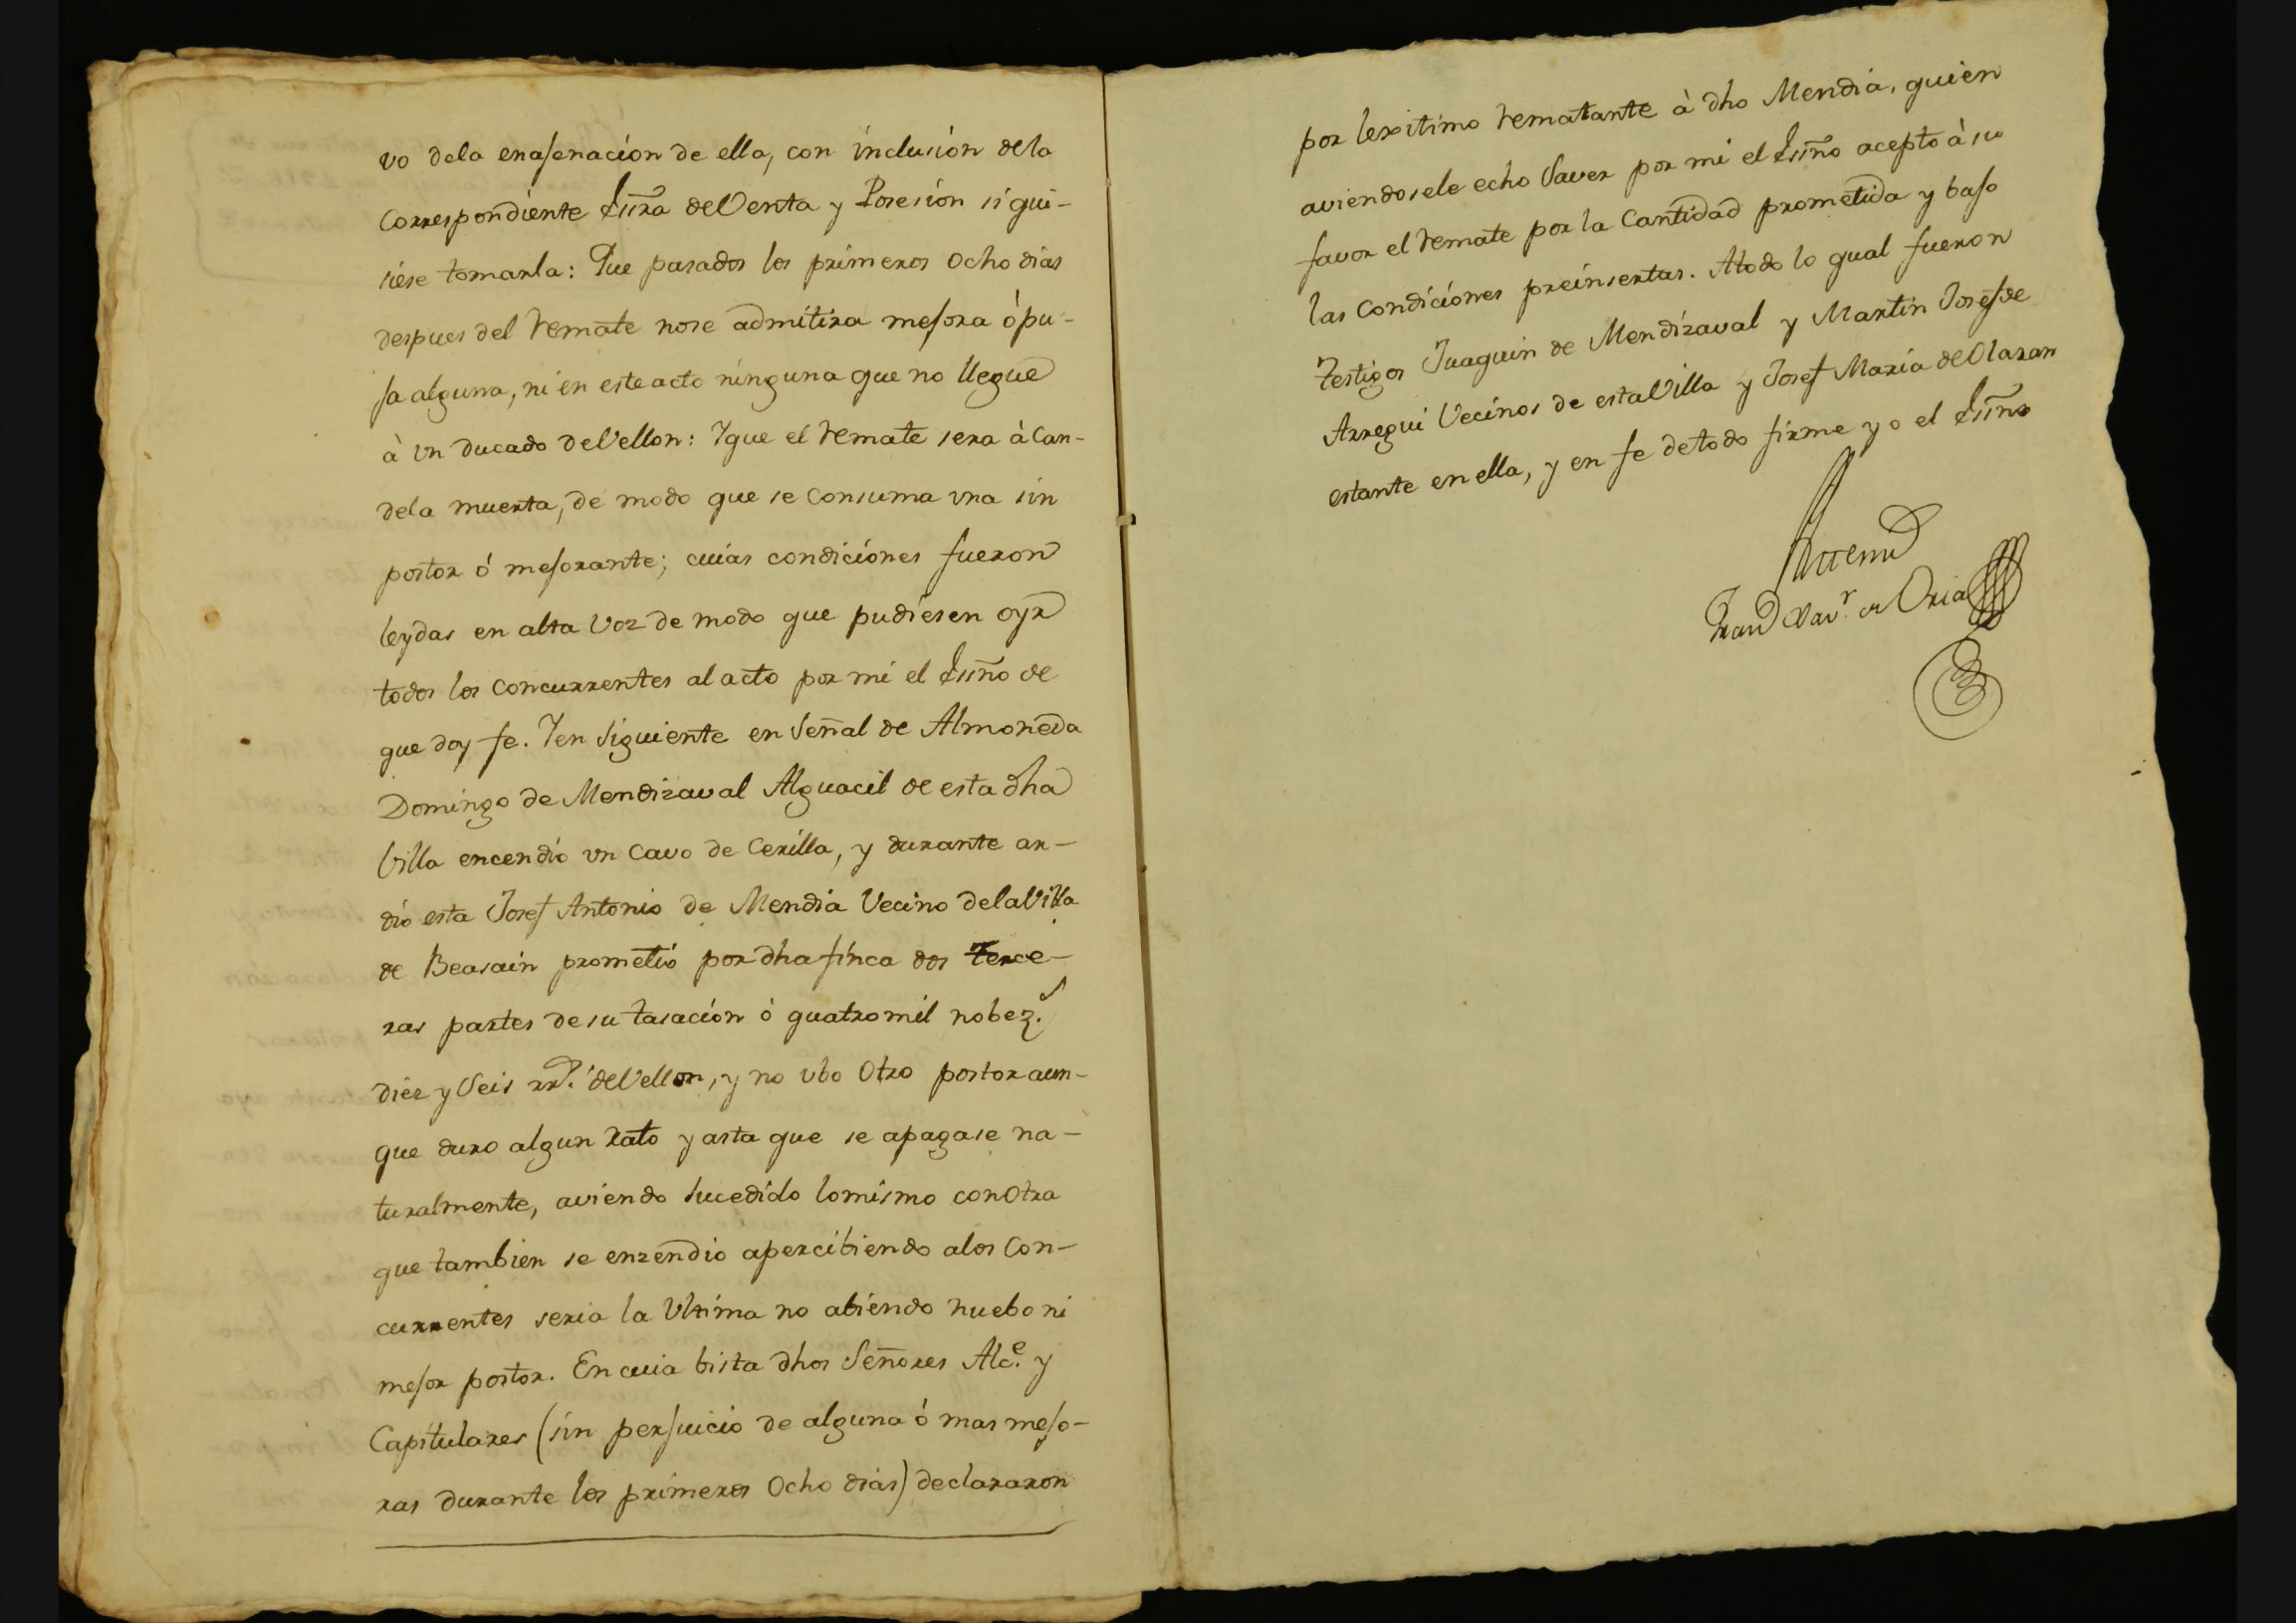 vo dela enajenación de ella, con inclusión dela
Correspondiente Essra deVenta y Posesión si qui-
siese tomarla: Que pasados los primeros Ocho dias
despues del remate nose admitira mejora ó pu-
ja alguna, ni en este acto ninguna que no llegue
à vn Ducado deVellon: Y que el remate sera à Can-
dela muerta, de modo que se Consuma vna sin
postor ó mejorante; cuias condiciónes fueron
leydas en alta Voz de modo que pudiesen oyr
todos los Concurrentes al acto por mi el Essno de
que doy fe. Y en Siguiente en Señal de Almoneda
Domingo de Mendizaval Alguacil de esta dha
Villa encendio vn Cavo de Cerilla, y durante ar-
dió esta Josef Antonio de Mendia Vecino dela Villa
de Beasain prometió por dha finca dos terce-
ras partes de su tasación ó quatromil nobez.s
diez y Seis rr.s deVellon, y no vbo Otro postor aun-
que duro algun Rato y asta que se apagase na-
turalmente, aviendo Sucedido lo mismo con Otra
que tambien se enzendio apercibiendo alos Con-
currentes seria la Vltima no abiendo nuebo ni
mejor postor. En cuia bista dhos Señores Alc.e y
Capitulares (sin perjuicio de alguna ó mas mejo-
ras durante los primeros Ocho dias) declararon
por lexitimo rematante à dho Mendia, quien
aviendosele echo Saver por mi el Essno acepto à su
favor el remate por la Cantidad prometida y bajo
las Condiciónes preinsertas. Atodo lo qual fueron
testigos Juaquin de Mendizaval y Martin Josef de
Arregui Vecinos de esta Villa y Josef Maria de Olaran
estante en ella, y en fe detodo firme yo el Essno
Fran.co Xav.r de Oria